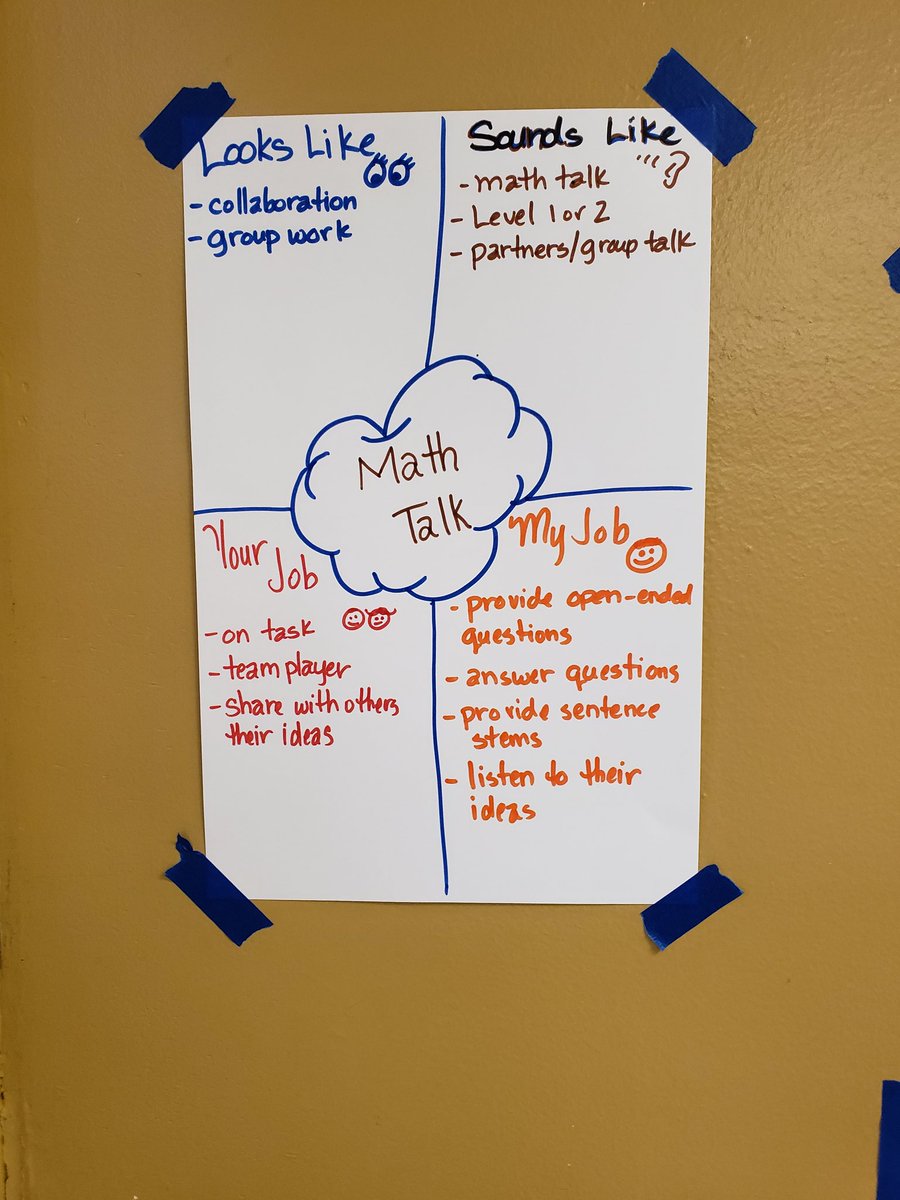 Looks Like
- collaboration
- group work
Sounds Like
- math talk
- Level 1 or 2
- partners/group talk
Math
Talk
Your
Job
- on task
- team player
- share with others
their ideas
My Job
- provide open-ended
questions
- answer questions
- provide sentence
stems
- listen to their
ideas